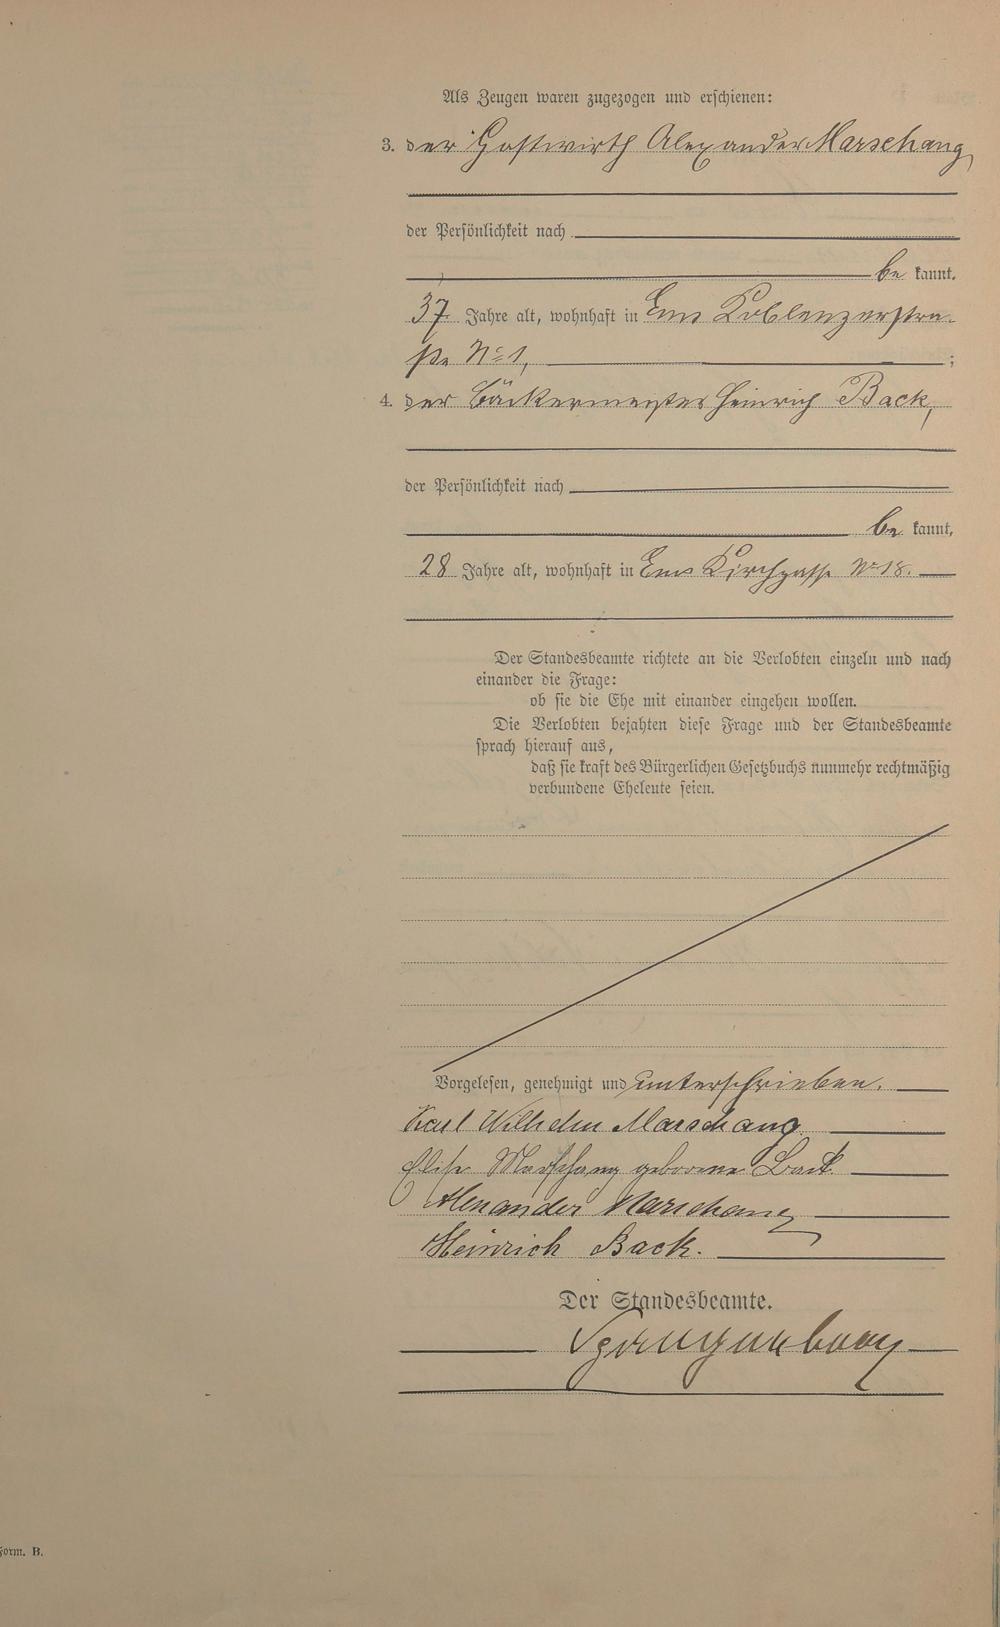 Als Zeugen waren zugezogen und erschienen:
3. der Gastwirth Alexander Marschang
der Persönlichkeit nach
be kannt,
37 Jahre alt, wohnhaft in Ems Koblenzerstra-
ße No 1, ;
4. der Bäckermeister Heinrich Back,
der Persönlichkeit nach
be kannt,
28 Jahre alt, wohnhaft in Ems Kirchgasse No 18.
Der Standesbeamte richtete an die Verlobten einzeln und nach
einander die Frage:
ob sie die Ehe mit einander eingehen wollen.
Die Verlobten bejahten diese Frage und der Standesbeamte
sprach hierauf aus,
daß sie kraft des Bürgerlichen Gesetzbuchs nunmehr rechtmäßig
verbundene Eheleute seien.
Vorgelesen, genehmigt und unterschrieben.
Karl Wilhelm Marschang
Elise Marschang geborene Back
Alexander Marschang
Heinrich Back.
Der Standesbeamte.
Form. B.